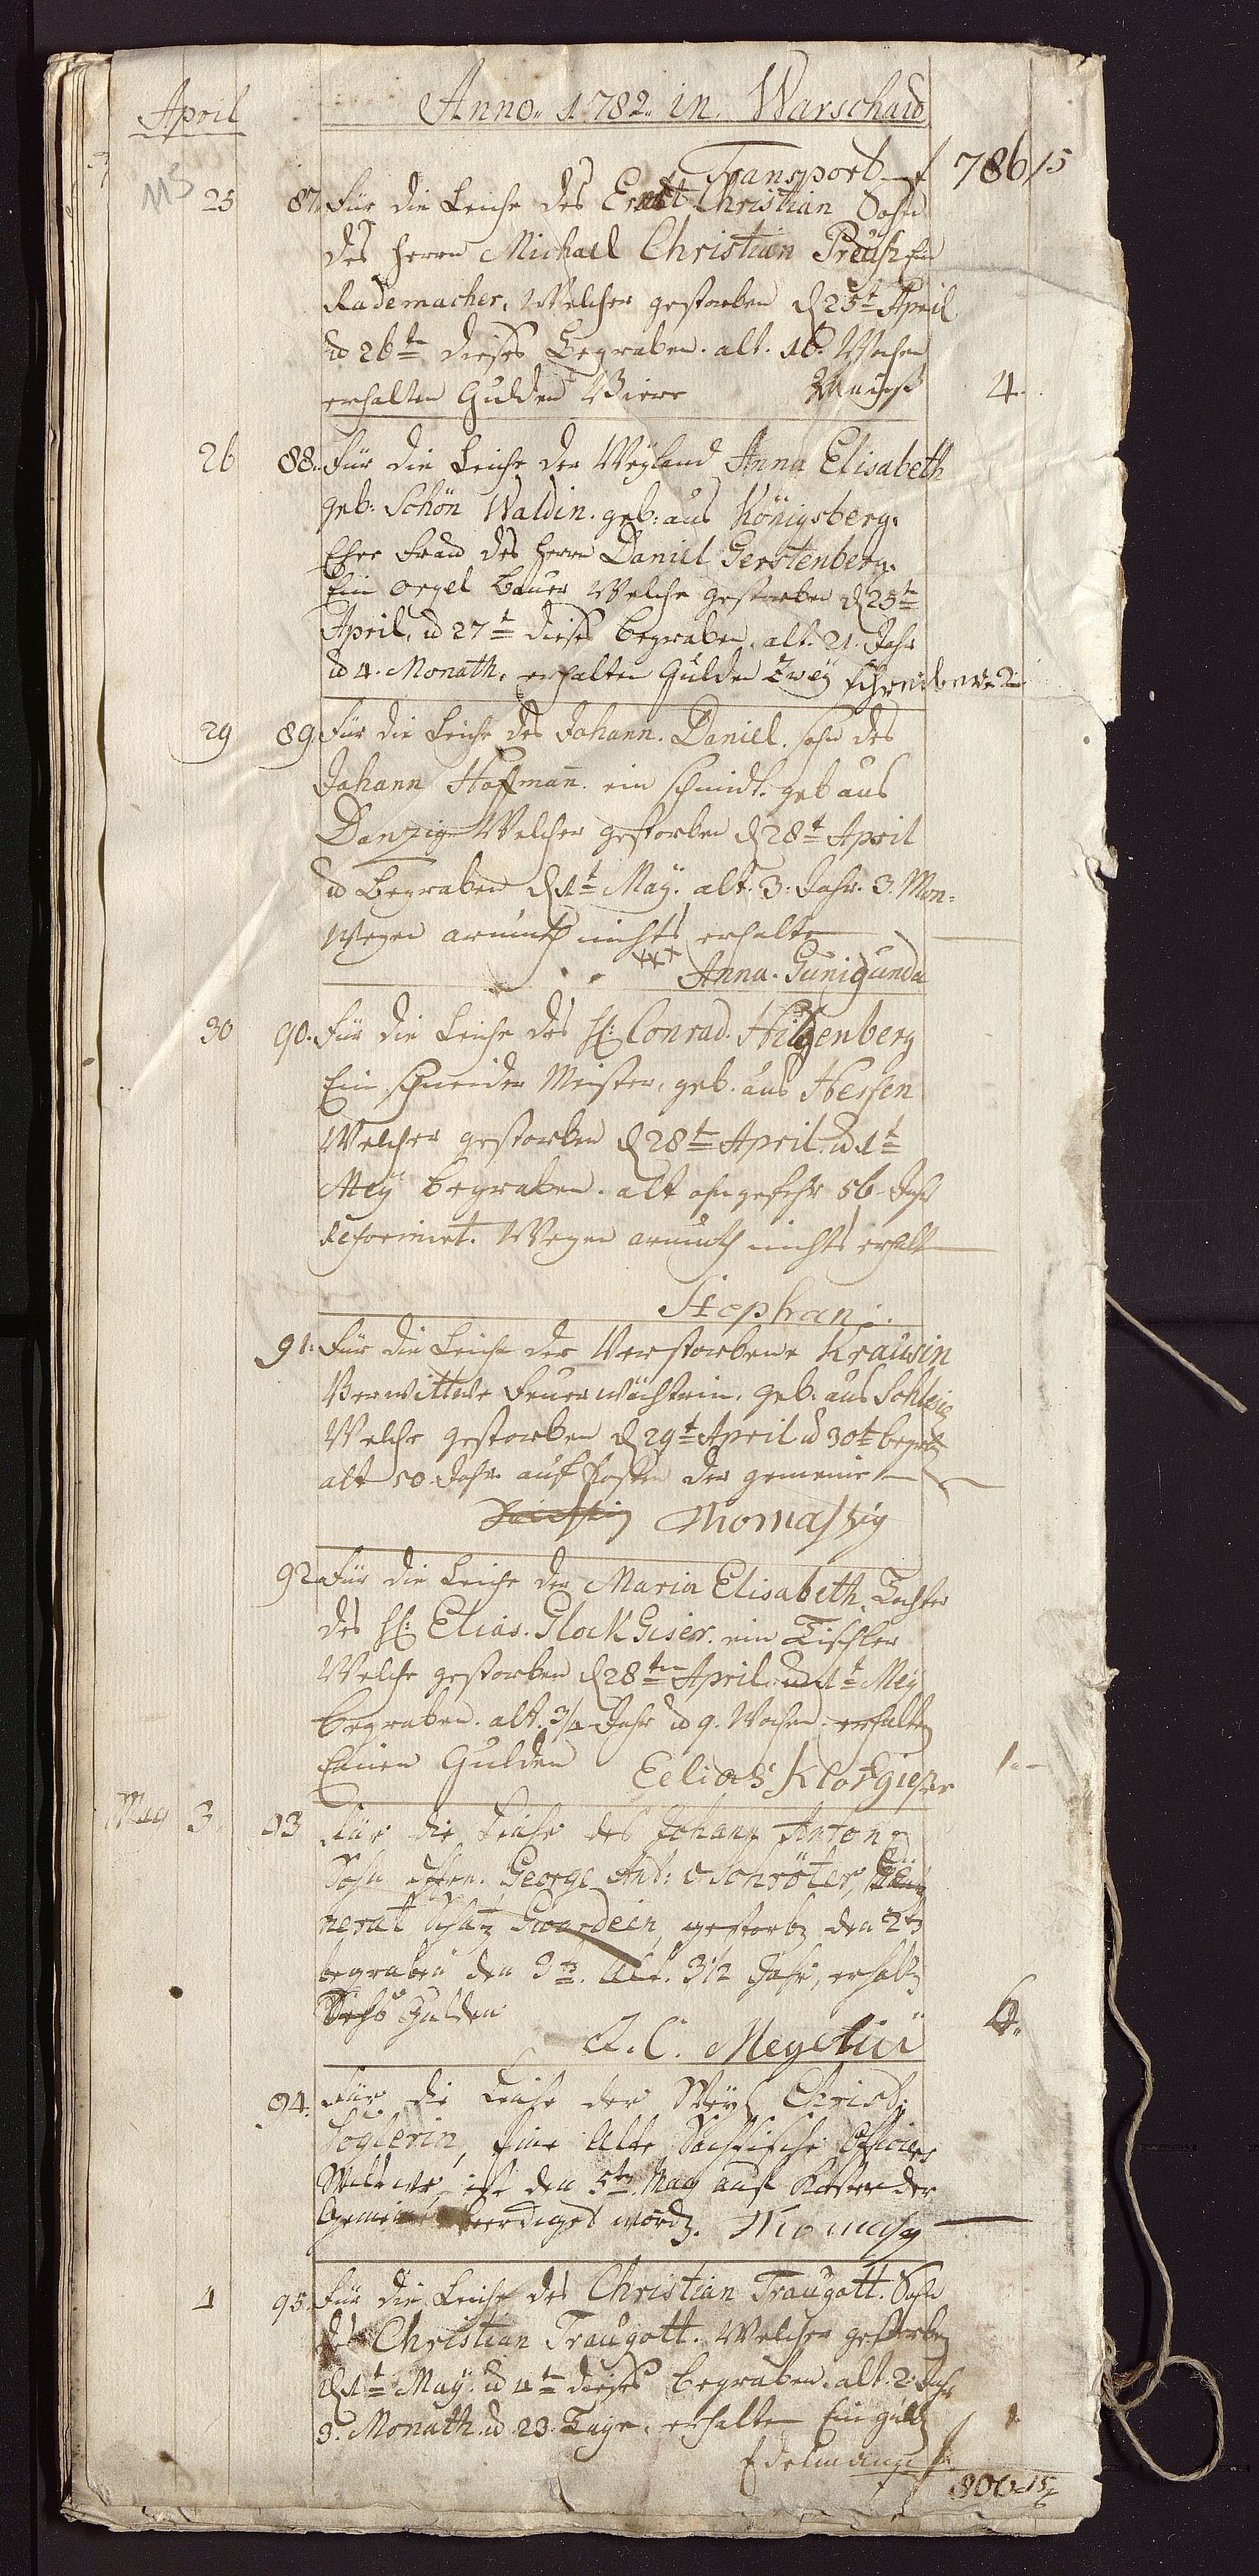 April
Anno. 1782. in. Warschau
115
Transport f 786/15
25 87. Für die Leiche des Ernst Christian Sohn
des Herrn Michael Christian Preuß ein
Rademacher, Welcher gestorben d 25t April
ud 26tn dieses Begraben. alt. 16. Wochen
erhalten Gulden Viere 4.
26 88. Für die Leiche der Weyland Anna Elisabeth
geb: Schön Waldin. geb: aus Königsberg.
Ehe Frau des Herrn Daniel Gerstenberg.
Ein Orgel Bauer Welche gestorben d 25t
April, ud 27t dieses begraben, alt. 21. Jahr
ud 4. Monath, erhalten Gulden Zweÿ Schreiber 2
29 89. Für die Leiche des Johann. Daniel. Sohn des
Johann Hofmañ. ein Schmidt. geb aus
Danzig Welcher gestorben d 28t April
ud Begraben d 1t Maÿ. alt. 3. Jahr. 3. Mon.
Wegen armuth nichts erhalten
Anna. Gunigunda
30 90. Für die Leiche des H: Conrad. Hilgenberg
Ein Schneider Meister, geb. aus Hessen
Welcher gestorben d 28t April ud 1t
Meÿ begraben. alt ohngefehr 56 Jahr
Reformiret. Wegen armuth nichts erhalt
Stephan
91. Für die Leiche der Verstorbene Krausin
Verwittwe Feuerwächterin. geb. aus
Welche gestorben d 29t April ud 30t begrab
alt 50. Jahr auf Kosten der gemeine
Thomaszig
92 Für die Leiche der Maria Elisabeth, Tochter
des H: Elias. Glock Giser. ein Tischler
Welche gestorben d 28tn April ud 1t Meÿ
begraben. alt. 3/4 Jahr ud 9. Wochen. erhalten
Einen Gulden Eelias Klockgieser 1.-
May 3. 93 Für die Leiche des Johann Anton
Sohn George Ant: Schröter,
Guardein, gestorb den 2t
begraben den 3t. Alt. 3 1/2 Jahr, erhalt
Sechs Gulden 6.
A. C. Megelin
94. Für die Leiche der Weyl Christ:
Voglerin, Eine Alte Sächsische Officiers
Wittwe, ist den 5t May auf Kosten der
Gemeine beerdiget word.
4 95. Für die Leiche des Christian Traugott. Sohn
des Christian Traugott. Welcher gestorben
d 1t Maÿ. ud 4t dieses begraben. alt. 2. Jahr
3. Monath. ud 23. Tage. erhalten Ein guld 1
Edelmann
800 15